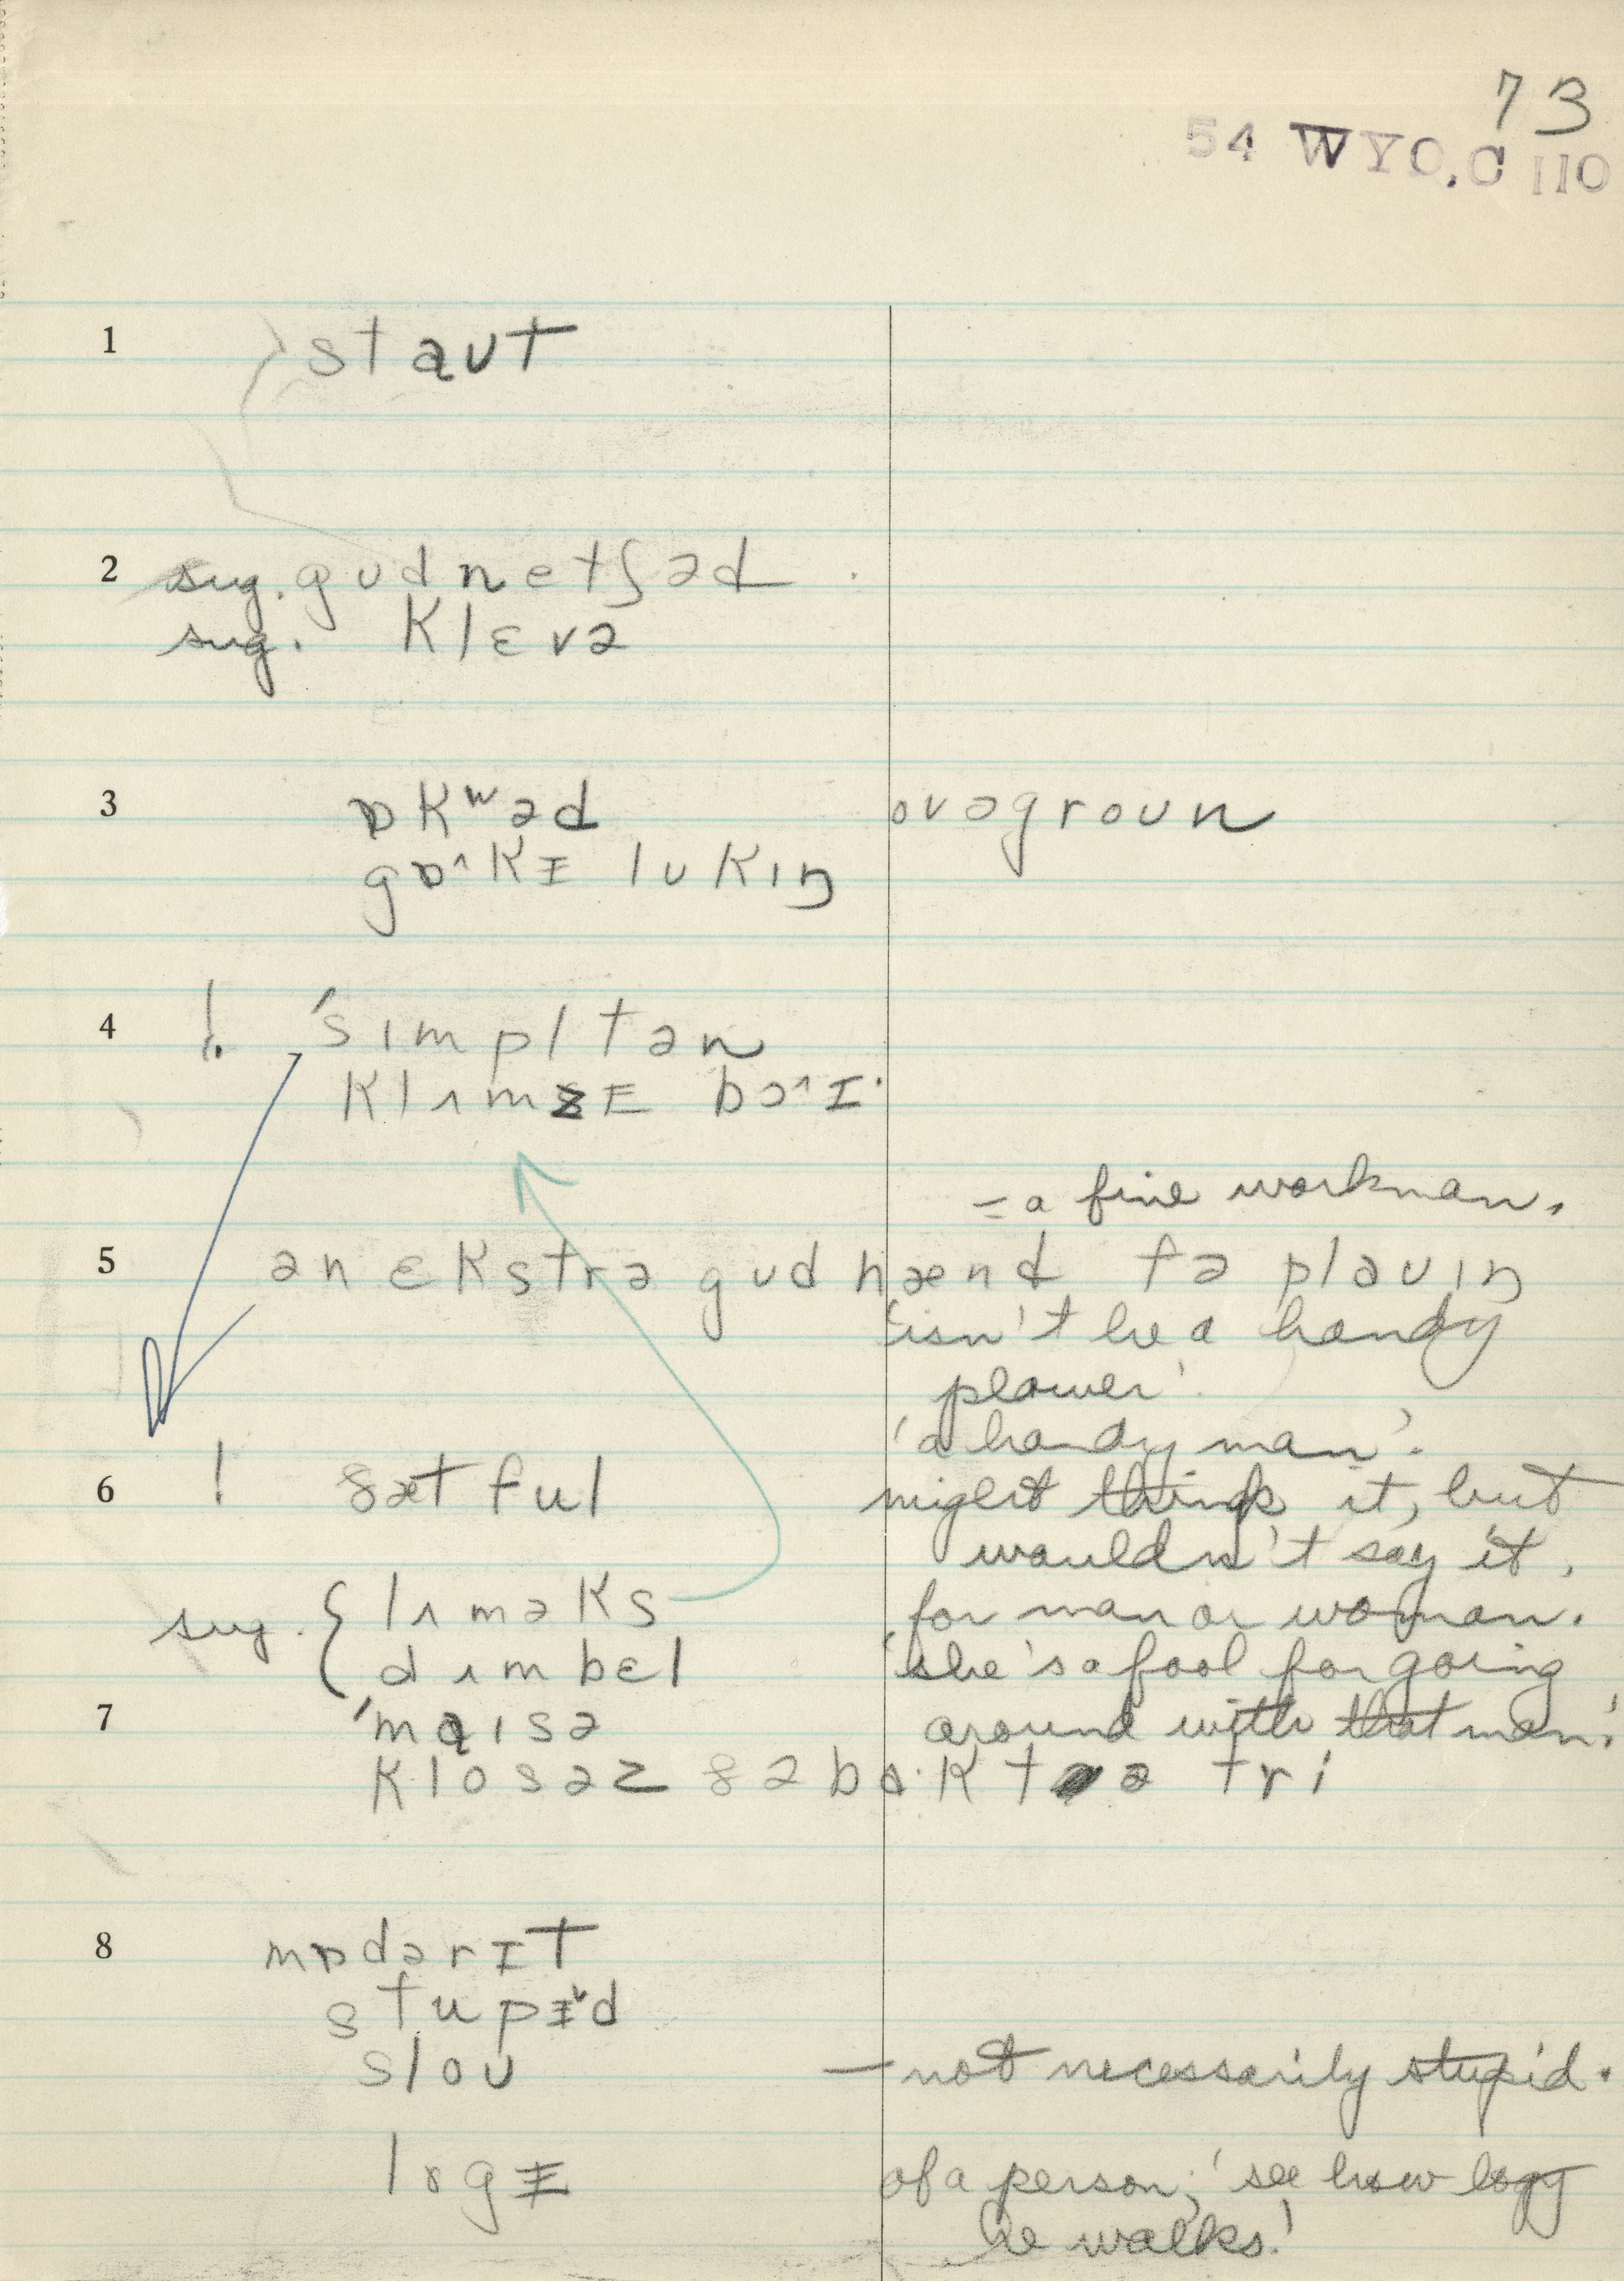 73
54 WYO. C 110
1 staut
2 sug. gudnetʃəd
sug. klɛvə
3 ɒkʷəd ovəgroun
gɒ˄kɪ lukɪŋ
4 ! 'sɪmpltən
klʌmzɪ bɔ˄ɪ
= a fine workman.
5 ən ɛkstrə gud hænd fə plauɪŋ
'isn't he a handy
plower'.
'a handy man'.
6 ! ful might think it, but
wouldn't say it.
sug. { lʌməks for man or woman.
dʌmbɛl 'she's a fool for going
7 'maɪsə around with that man.'
klosəz ðə bɑ·k tə ə tri
8 mɒdərɪt
stupɪd
slou — not necessarily stupid.
of a person; 'see how logy
he walks.'